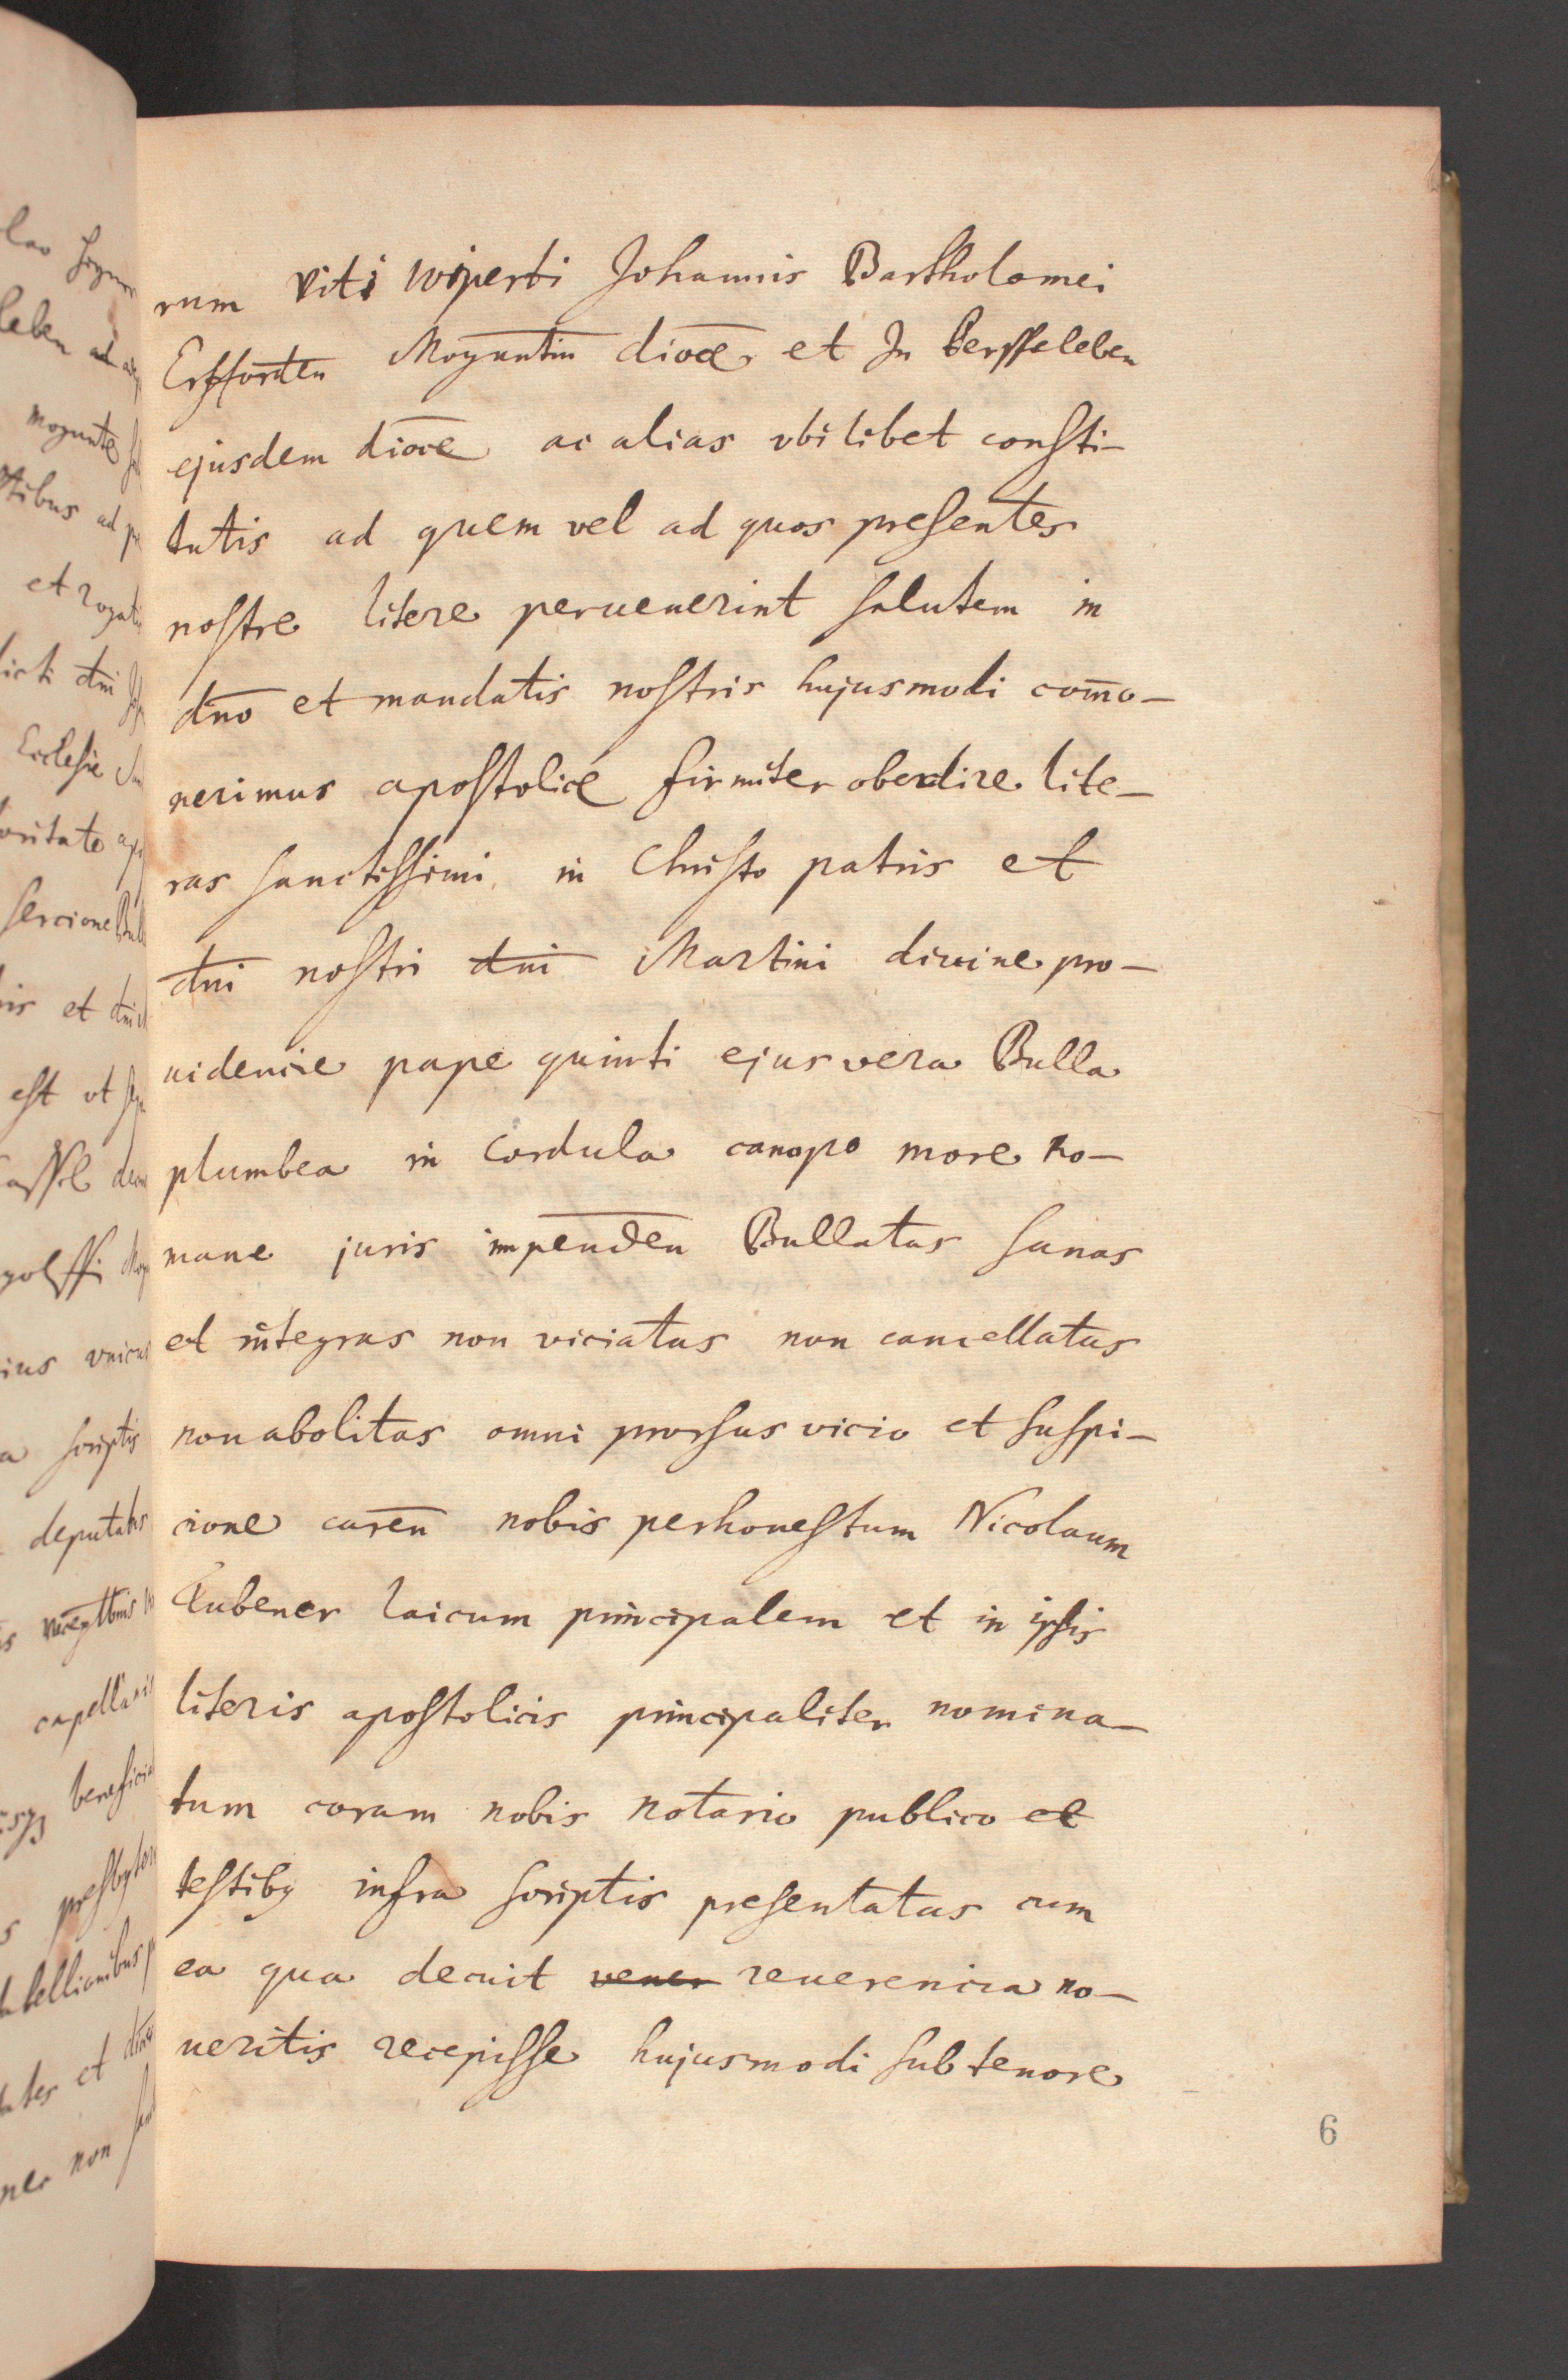 rum Viti wiperti Johannis Bartholomei
Erffordten Moguntin dioce. et In Berffeleben
ejusdem dioce ac alias vbilibet consti-
tutis ad quem vel ad quos presentes
nostre litere peruenerint salutem in
dno et mandatis nostris hujusmodi com̄o-
nerimus apostolice firmiter obedire lite-
ras sanctissimi in Christo patris et
dni nostri dni Martini divine pro-
uidencie pape quinti ejus vera Bulla
plumbea in Cordula canapo more ro-
mane juris impenden Bullatas sanas
et integras non viciatas non cancellatas
non abolitas omni prorsus vicio et suspi-
cione caren nobis per honestum Nicolaum
Tubener laicum principalem et in ipsis
literis apostolicis principaliter nomina-
tum coram nobis notario publico et
testiby infra scriptis presentatas cum
ea qua decuit vener reuerencia no-
ueritis recepisse hujusmodi sub tenore
6